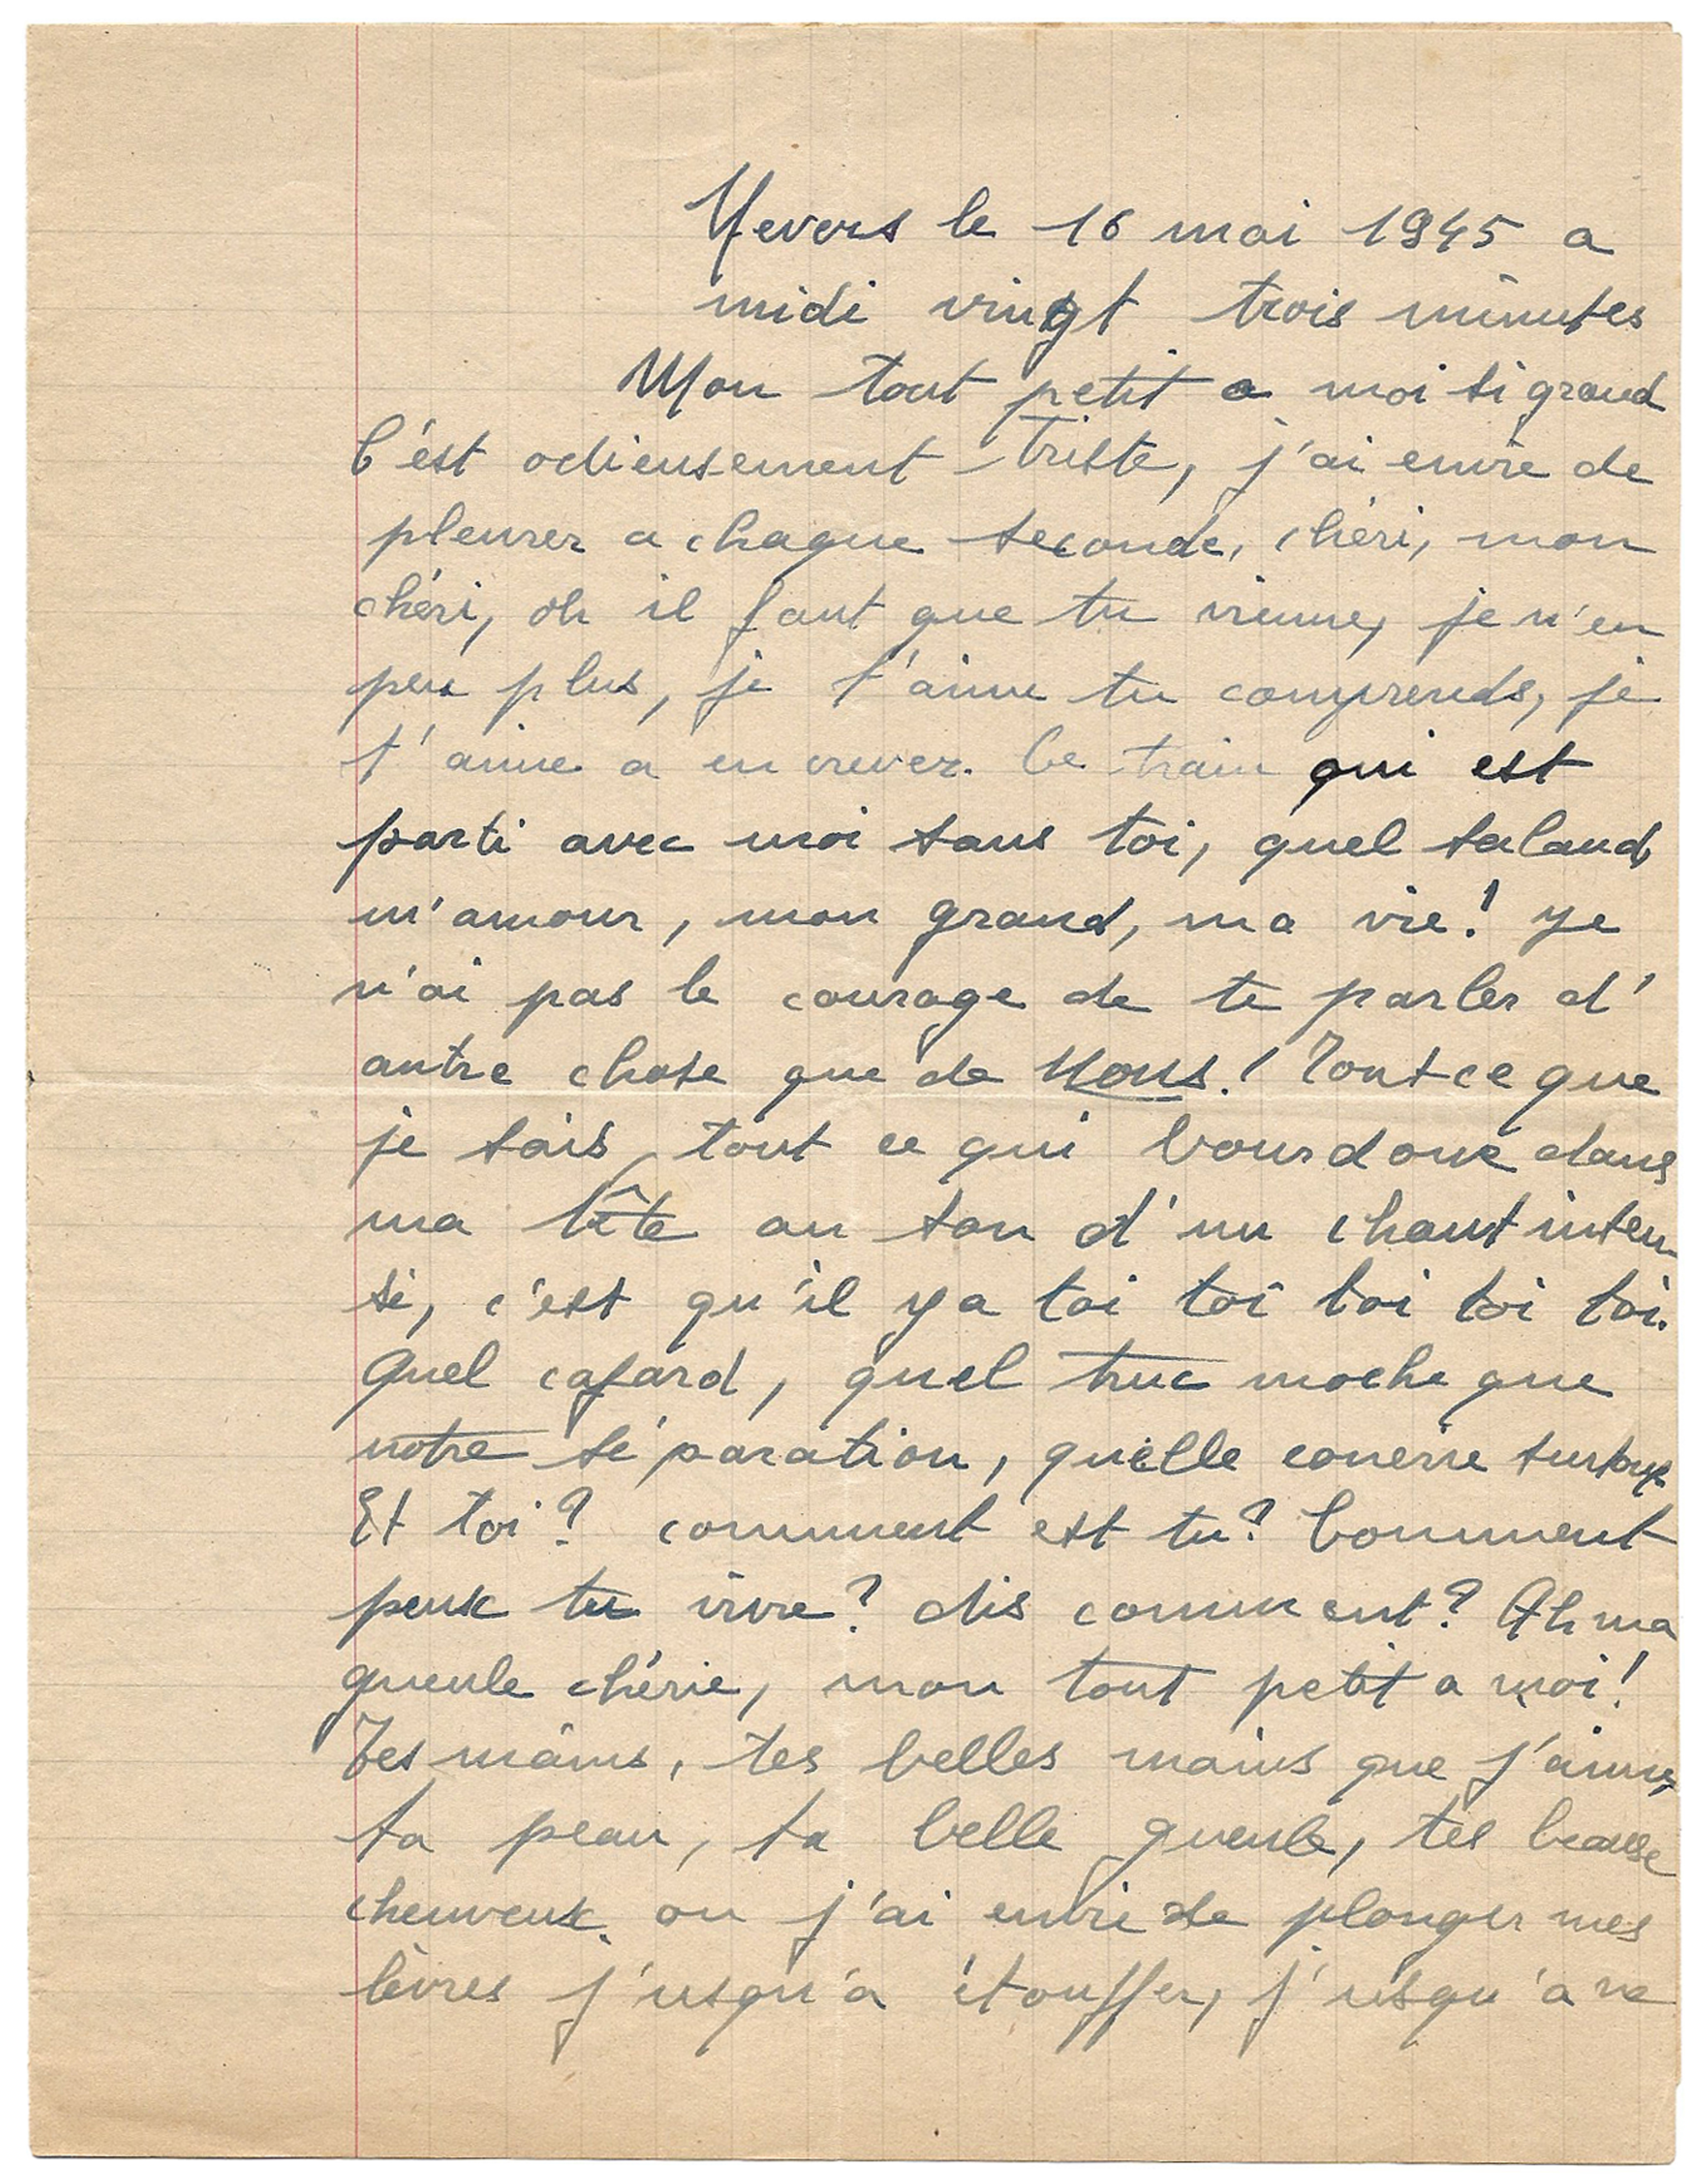 Nevers le 16 mai 1945 a
midi vingt trois minutes
Mon tout petit a moi si grand
C'est odieusement triste, j'ai envie de
pleurer a chaque seconde, chéri, mon
chéri, oh il faut que tu vienne, je n'en
peu plus, je t'aime tu comprends, je
t'aime a en crever. Ce train qui est
parti avec moi sans toi, quel salaud,
m'amour, mon grand, ma vie! Je
n'ai pas le courage de te parler d'
autre chose que de Nous! Tout ce que
je sais, tout ce qui bourdone dans
ma tête au son d'un chant inten
si, c'est qu'il y a toi toi toi toi toi.
Quel cafard, quel truc moche que
notre séparation, quelle conerie surtout
Et toi? comment est tu? Comment
peux tu vivre? dis comment? Ah ma
gueule chérie, mon tout petit a moi!
Tes mains, tes belles mains que j'aime,
ta peau, ta belle gueule, tes beaux
cheuveux ou j'ai envie de plonger mes
lèvres j'usqu'a étouffer, j'usqu'a ne